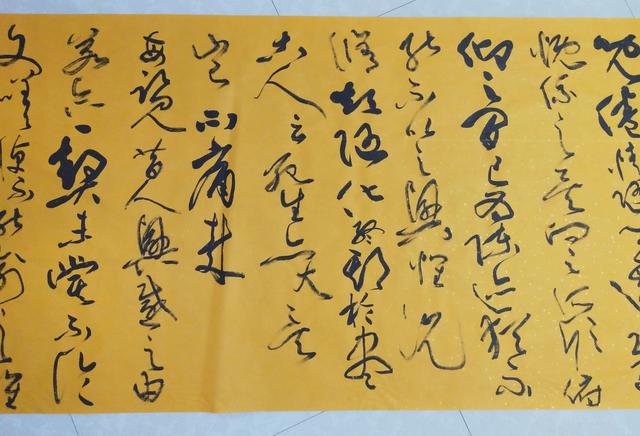 倦情隨事遷感
慨係之矣向之所欣俯
仰之間已為陳迹猶不
能不以之興懷況
脩短隨化終期於盡
古人云死生亦大矣
豈不痛哉
每覽昔人興感之由
若合一契未嘗不臨
文嗟悼不能喻之